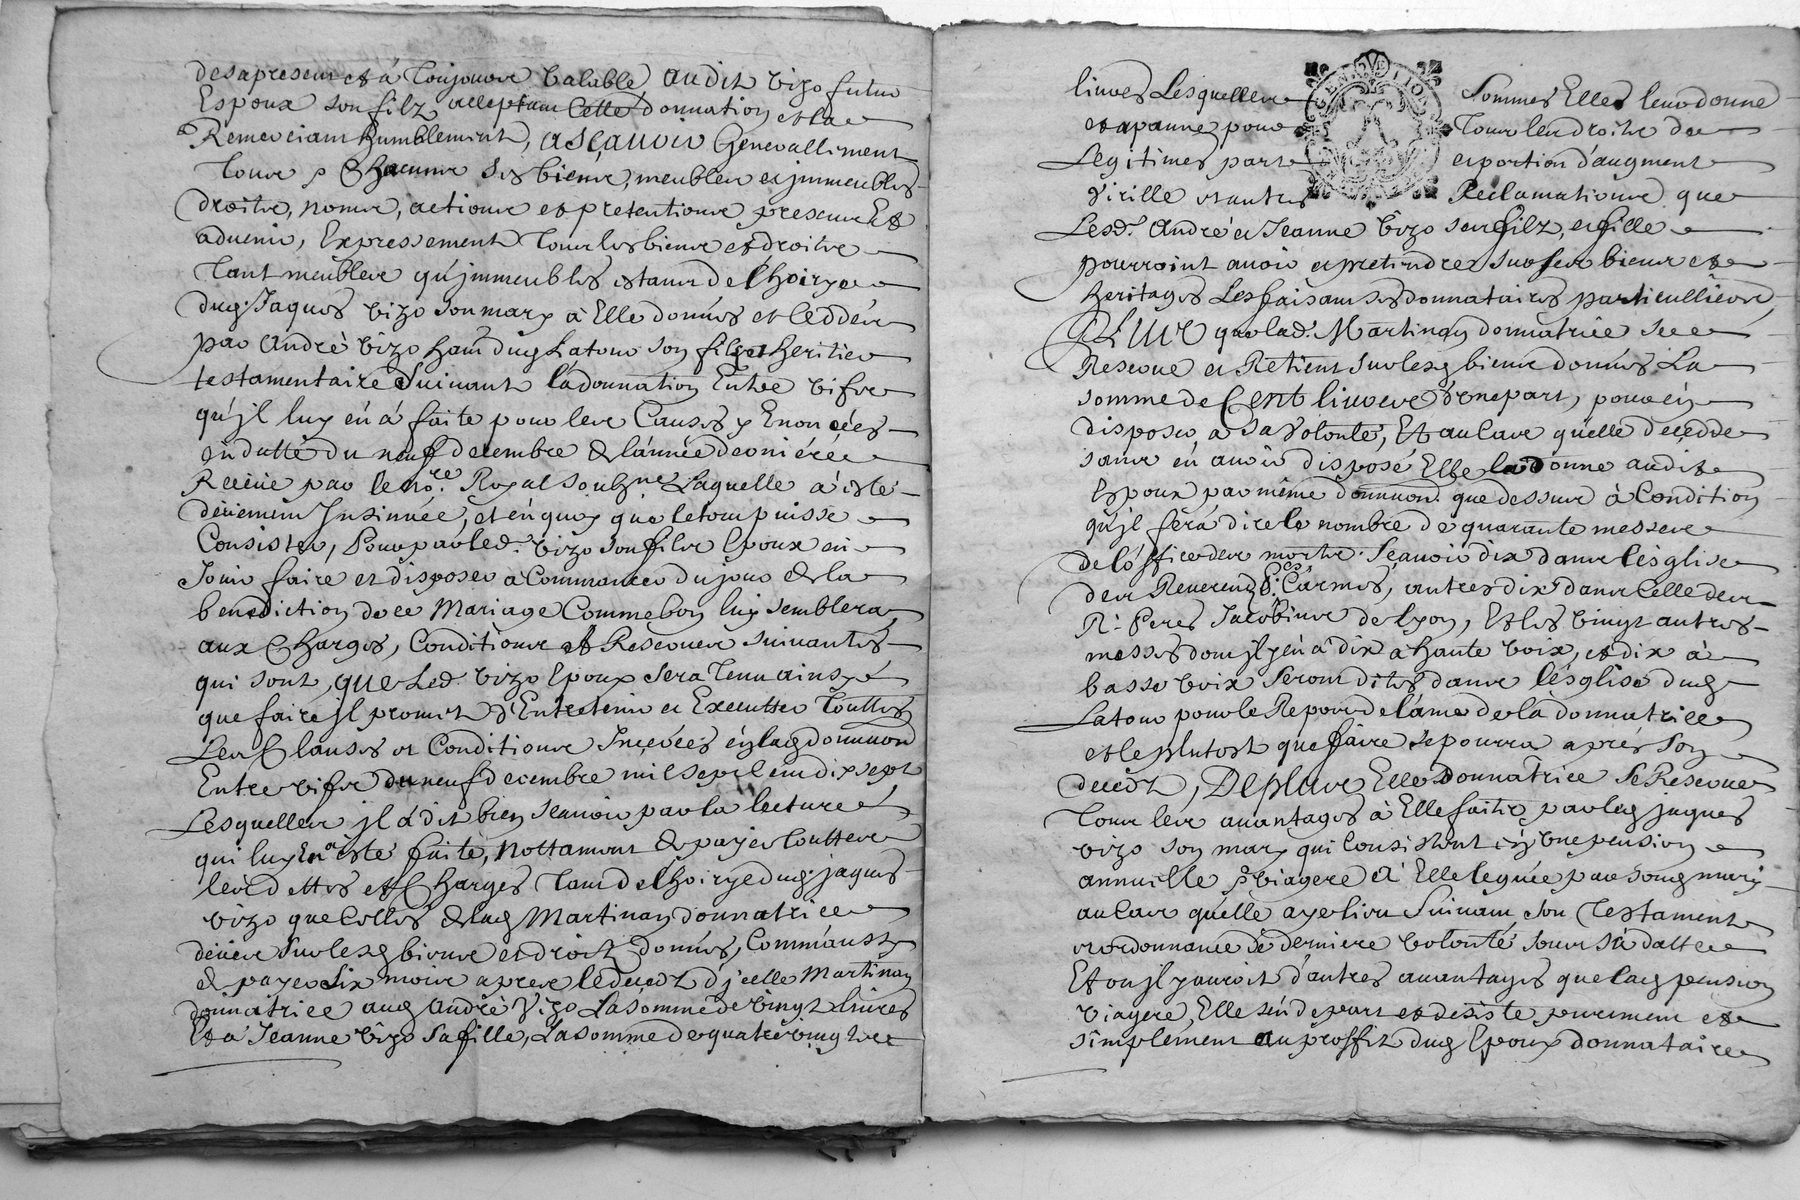 desapresent et à Toujours Valable, audit Vizo futur
Espoux son filz acceptant Cette donnation et la
Remerciant humblement, asçavoir Generallement
Tous & Chacuns ses biens, meubles et jmmeubles
droits, noms, actions et pretentions presens Et
advenir, Expressement Tous les biens et droits
Tant meubles qu'jmmeubles estans de l'hoirye
dug. Jaques Vizo son mary à Elle donnés et Ceddés
par André Vizo hant dug Latour son fils et heritier
testamentaire Suivant la donnation Entre vifs
qu'jl luy en à faite pour les Causes y Enoncées
en datte du neuf decembre de l'année derniére
Reçüe par le no.re Royal soubz.né Laquelle à esté
deüement Jnsinuée, et en quoy que le tout puisse
Consister, Pour par led. Vizo son fils Epoux en
Jouir faire et disposer à Commancer du jour de la
benediction de ce Mariage Comme bon luy semblera
aux Charges, Conditions et Reserves suivantes
qui sont, que Led. Vizo Epoux sera Tenu ainsy
que faire jl promet d'Entretenir et Executter Touttes
Les Clauses et Conditions Jnserées en lad donnaon
Entre vifs du neuf decembre mil sept cent dix sept
Lesquelles jl à dit bien sçavoir par la lecture
qui luy En à esté faite, Nottament de payer Touttes
les dettes et Charges Tant de l'hoirye dug. jaques
Vizo que Celles de lad Martinay donnatrice
deües sur lesd biens et droit donnés, Comm'aussy
de payer six mois apres le deçedz d'jcelle Martinay
donnatrice aud André Vizo La somme de vingt livres
Et à Jeanne Vizo sa fille, La somme de quatre vingt
livres Lesquelles Sommes Elles leur donne
et apanne pour Tous leurs droits de
Legitimes part et portion d'augment
Virille et autres Reclamations que
Lesd. André et Jeanne Vizo ses filz, et fille
pourroint avoir et pretendre sur ses biens et
heritages Les faisant ses donnataires particulliers,
Plus que lad. Martinay donnatrice se
Reserve et Retient sur lesd biens donnés La
somme de Cent livres d'une part, pour en
disposer à sa volonté, Et au Cas qu'elle decedde
sans en avoir disposé Elle la donne audit
Espoux par même donnaon. que dessus à Condition
qu'jl fera dire le nombre de quarante messes
de l'office des morts. Sçavoir dix dans l'esglise
des Reverendz P.es Carmes, autres dix dans Celle des
R. Peres Jacobins de Lyon, Et les vingt autres
messes dont jl y en à dix à haute Voix, et dix à
basse Voix seront dites dans l'esglise dud
Latour pour le Repos de l'ame de la donnatrice
et le plutost que faire se pourra aprés son
decés, De plus Elle donnatrice se Reserve
Tous les avantages à Elle faits par led jaques
Vizo son mary qui Consistent en une pension
annuelle & viagere à Elle leguée par sond mary
au Cas qu'elle aye lieu Suivant son Testament
et ordonnance de derniere volonté sous sa datte
Et ou jl y auroit d'autres avantages que lad pension
viagere, Elle s'en depart et desiste purement et
simplement au proffit dud Epoux donnataire